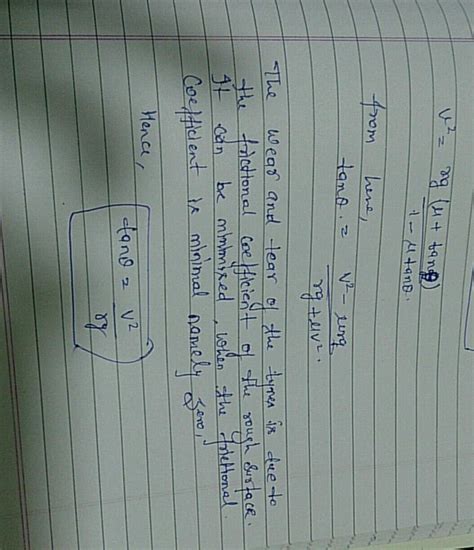 v² = rg (μ + tanθ) / 1 - μ tanθ.
from here,
tanθ. = v² - μrg / rg + μv².
The wear and tear of the tyres is due to
the frictional coefficient of the rough surface.
It can be minimised, when the frictional
coefficient is minimal namely zero,
Hence,
tanθ = v² / rg